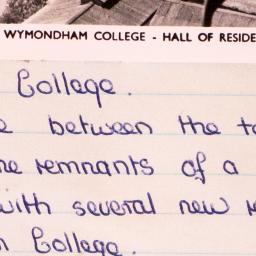 WYMONDHAM COLLEGE - HALL OF RESIDE
College.
between the to
remnants of a
with several new
College.